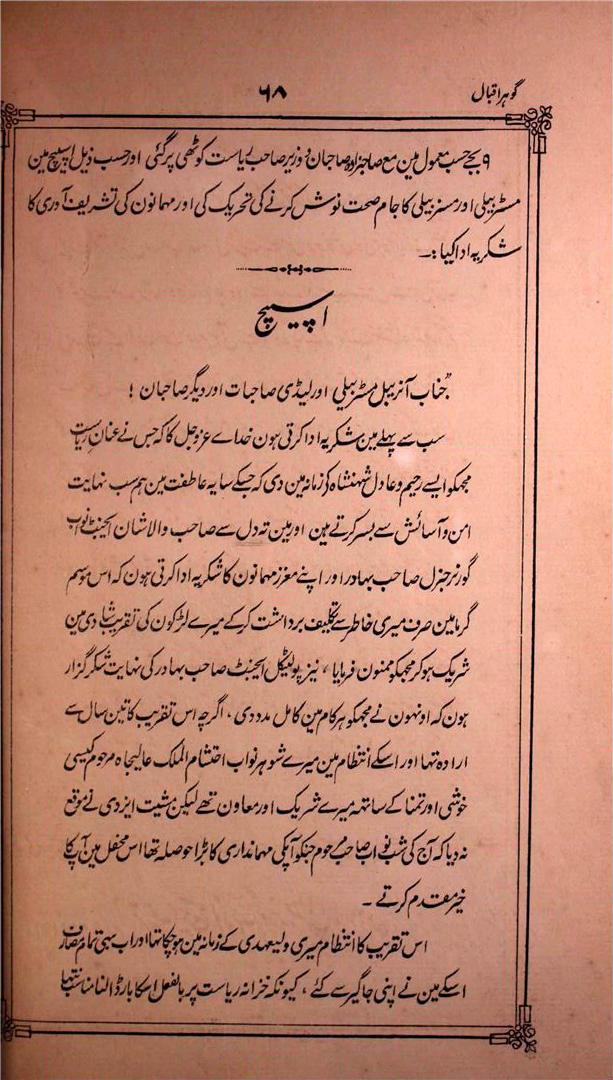 گوہر اقبال
۶۸
۹ بجے حسب معمول مین مع صاحبزادہ صاحبان و وزیر صاحب ریاست کوٹھی پر گئی اور حسب ذیل اسپیچ مین
مسٹر بیلی اور مسز بیلی کا جام صحت نوش کرنے کی تحریک کی اور مہمانون کی تشریف آوری کا
شکریہ ادا کیا :۔
اسپیچ
”جناب آنریبل مسٹر بیلی اور لیڈی صاحبات اور دیگر صاحبان !
سب سے پہلے مین شکریہ ادا کرتی ہون خداے عزوجل کا کہ جس نے عنان ریاست
مجھکو ایسے رحیم و عادل شہنشاہ کے زمانہ مین دی کہ جسکے سایہ عاطفت مین ہم سب نہایت
امن و آسائش سے بسر کرتے ہین اور مین تہ دل سے صاحب والاشان ایجنٹ نواب
گورنر جنرل صاحب بہادر اور اپنے معزز مہمانون کا شکریہ ادا کرتی ہون کہ اس موسم
گرما مین صرف میری خاطر سے تکلیف برداشت کرکے میرے لڑکون کی تقریب شادی مین
شریک ہوکر مجھکو ممنون فرمایا ، نیز پولیٹکل ایجنٹ صاحب بہادر کی نہایت شکر گزار
ہون کہ اونہون نے مجھکو ہر کام مین کامل مدد دی ، اگرچہ اس تقریب کا تین سال سے
ارادہ تہا اور اسکے انتظام مین میرے شوہر نواب احتشام الملک عالیجاہ مرحوم کیسی
خوشی اور تمنا کے ساتہہ میرے شریک اور معاون تھے لیکن مشیت ایزدی نے موقع
نہ دیا کہ آج کی شب نواب صاحب مرحوم جنکو آپکی مہمانداری کا بڑا حوصلہ تھا اس محفل مین آپ کا
خیر مقدم کرتے ۔
اس تقریب کا انتظام میری ولیعہدی کے زمانہ مین ہوچکا تہا اور اب بہی تمام مصارف
اسکے مین نے اپنی جاگیر سے کئے ، کیونکہ خزانہ ریاست پر بالفعل اسکا بار ڈالنا مناسب نتہا